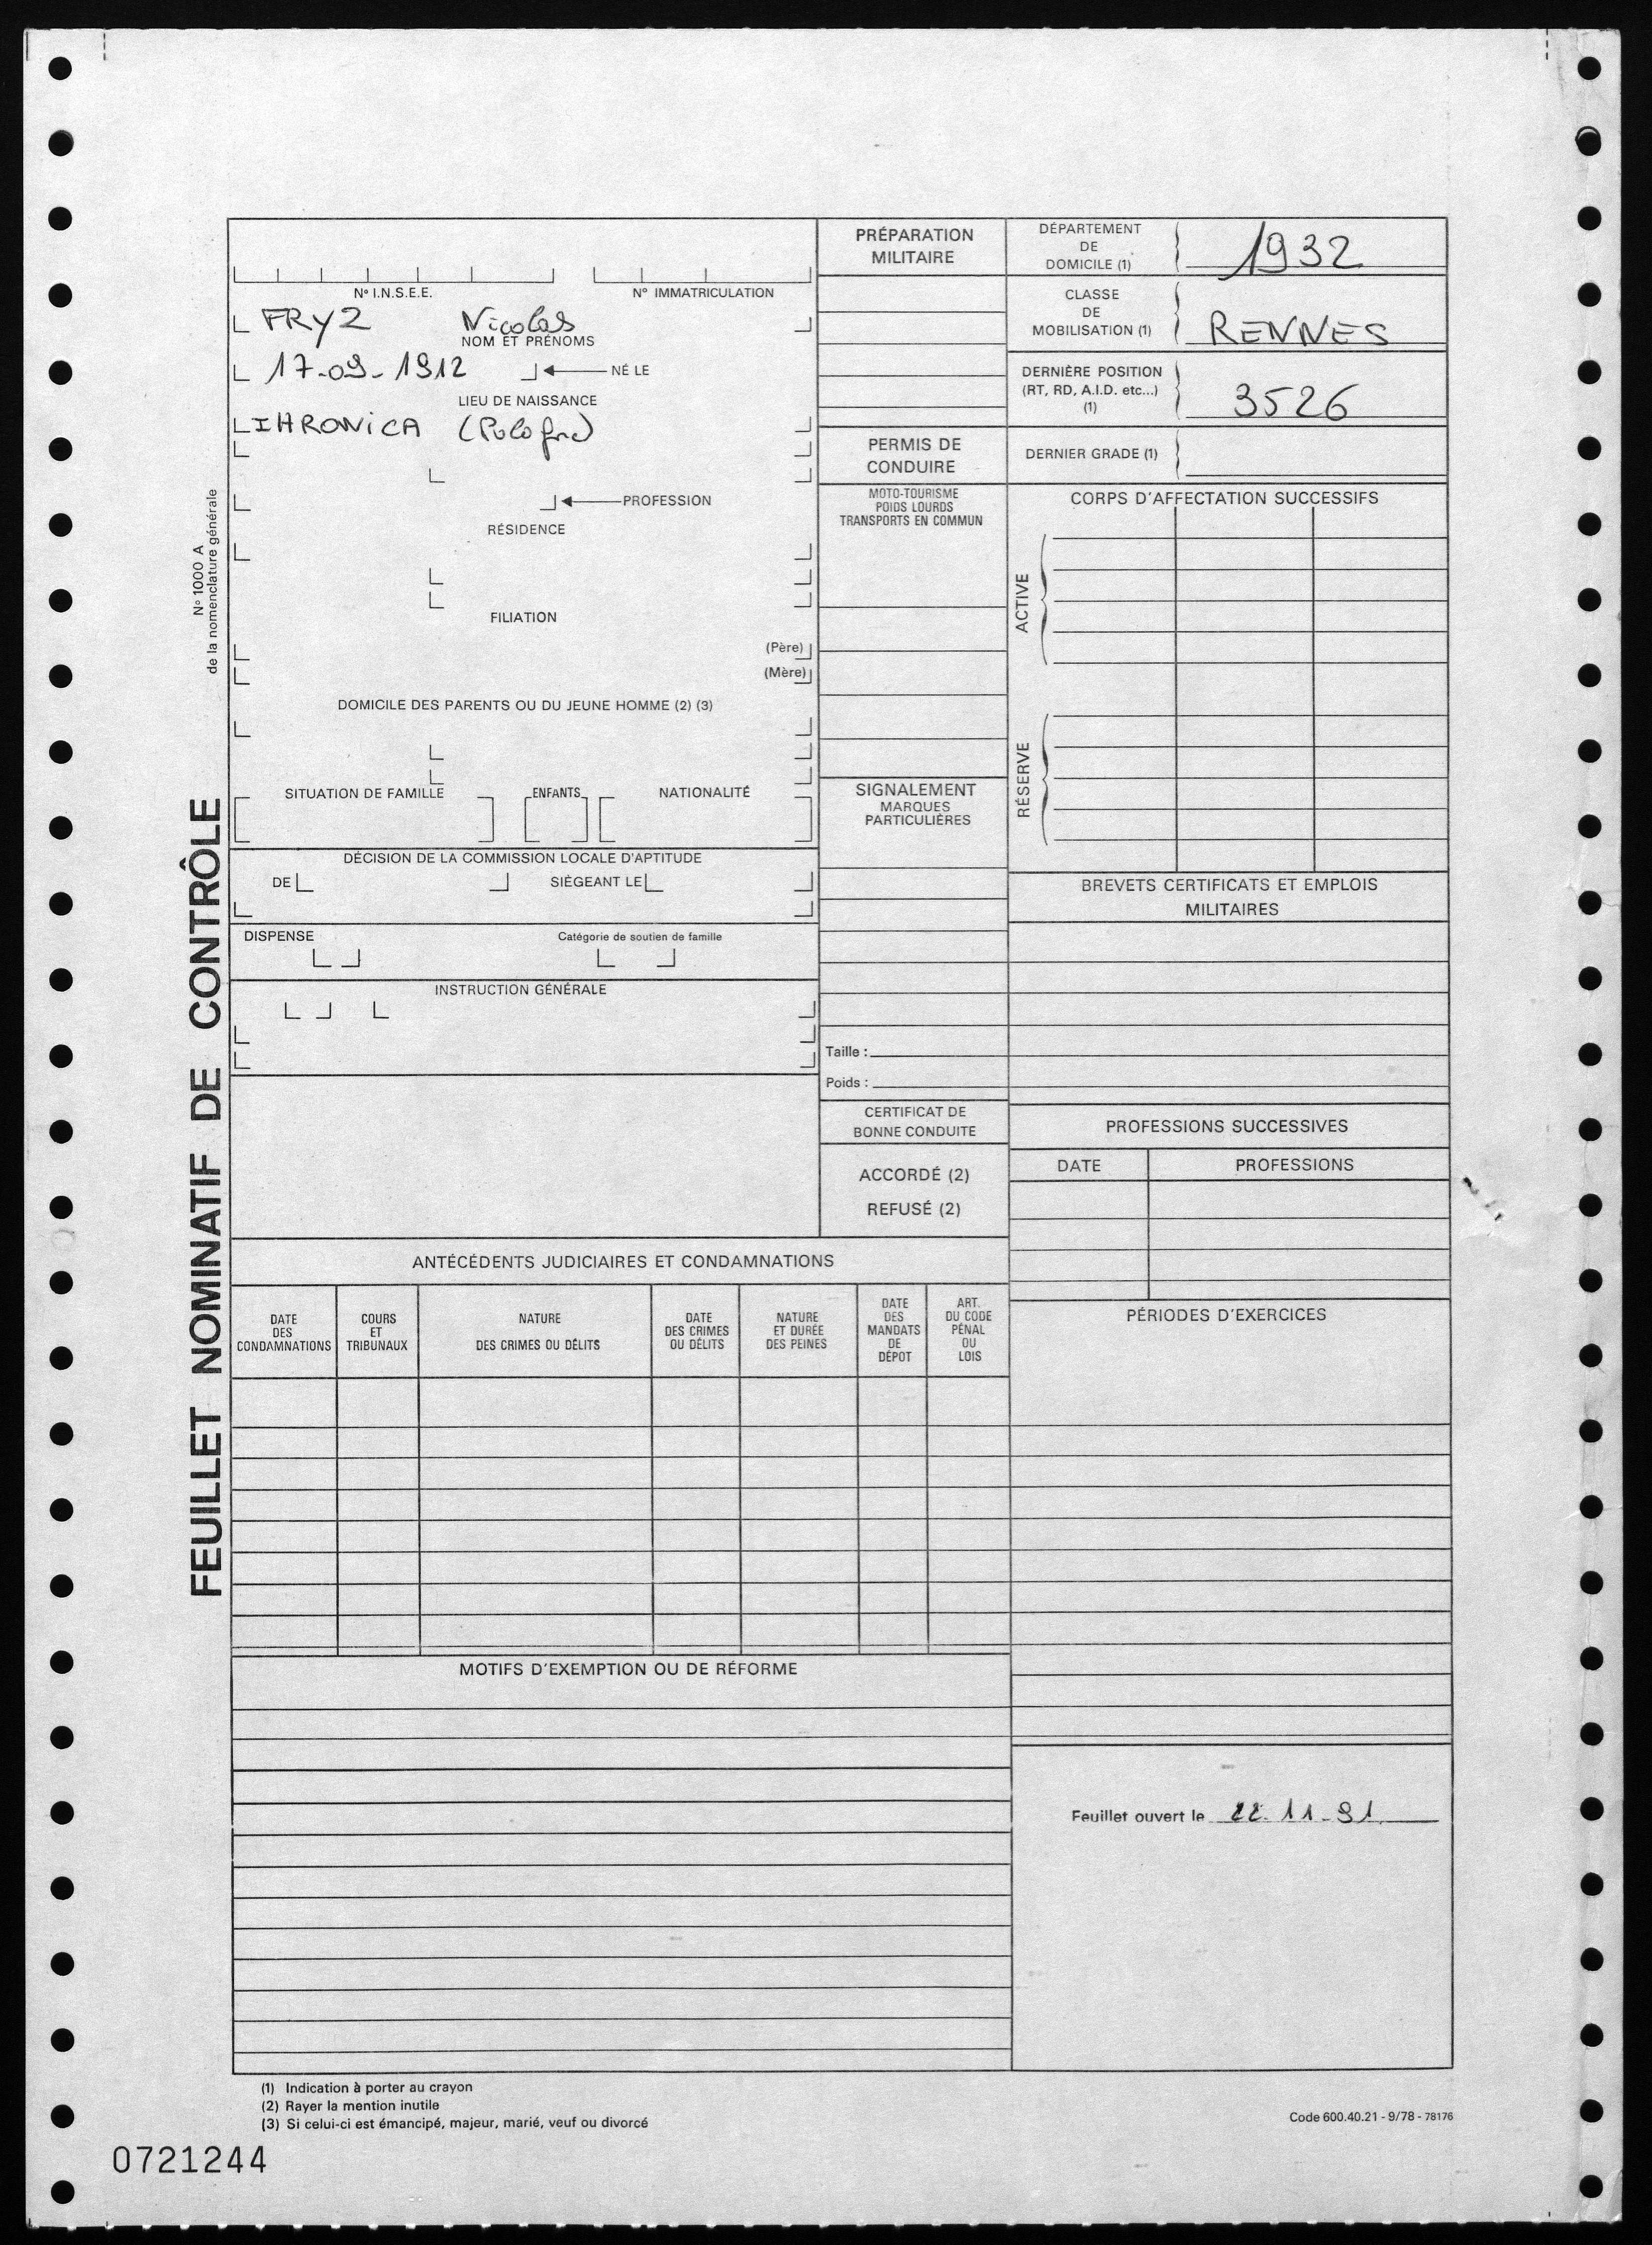 PRÉPARATION
MILITAIRE
DÉPARTEMENT
DE
DOMICILE (1)
1932
N° I.N.S.E.E.
N° IMMATRICULATION
CLASSE
DE
MOBILISATION (1)
RENNES
FRYZ Nicolas
NOM ET PRÉNOMS
17-09-1912
NÉ LE
DERNIÈRE POSITION
(RT, RD, A.I.D. etc...)
(1)
3526
LIEU DE NAISSANCE
IHRONICA (Pologne)
PERMIS DE
CONDUIRE
DERNIER GRADE (1)
MOTO-TOURISME
POIDS LOURDS
TRANSPORTS EN COMMUN
CORPS D'AFFECTATION SUCCESSIFS
PROFESSION
RÉSIDENCE
ACTIVE
FILIATION
(Père)
(Mère)
N° 1000 A
de la nomenclature générale
DOMICILE DES PARENTS OU DU JEUNE HOMME (2) (3)
RÉSERVE
SITUATION DE FAMILLE
ENFANTS
NATIONALITÉ
SIGNALEMENT
MARQUES
PARTICULIÈRES
DÉCISION DE LA COMMISSION LOCALE D'APTITUDE
DE
SIÉGEANT LE
BREVETS CERTIFICATS ET EMPLOIS
MILITAIRES
DISPENSE
Catégorie de soutien de famille
INSTRUCTION GÉNÉRALE
Taille :
Poids :
FEUILLET NOMINATIF DE CONTRÔLE
CERTIFICAT DE
BONNE CONDUITE
ACCORDÉ (2)
REFUSÉ (2)
PROFESSIONS SUCCESSIVES
DATE
PROFESSIONS
ANTÉCÉDENTS JUDICIAIRES ET CONDAMNATIONS
DATE
DES
CONDAMNATIONS
COURS
ET
TRIBUNAUX
NATURE
DES CRIMES OU DÉLITS
DATE
DES CRIMES
OU DÉLITS
NATURE
ET DURÉE
DES PEINES
DATE
DES
MANDATS
DE
DÉPOT
ART.
DU CODE
PÉNAL
OU
LOIS
PÉRIODES D'EXERCICES
MOTIFS D'EXEMPTION OU DE RÉFORME
Feuillet ouvert le 22-11-91
(1) Indication à porter au crayon
(2) Rayer la mention inutile
(3) Si celui-ci est émancipé, majeur, marié, veuf ou divorcé
Code 600.40.21 - 9/78 - 78176
0721244